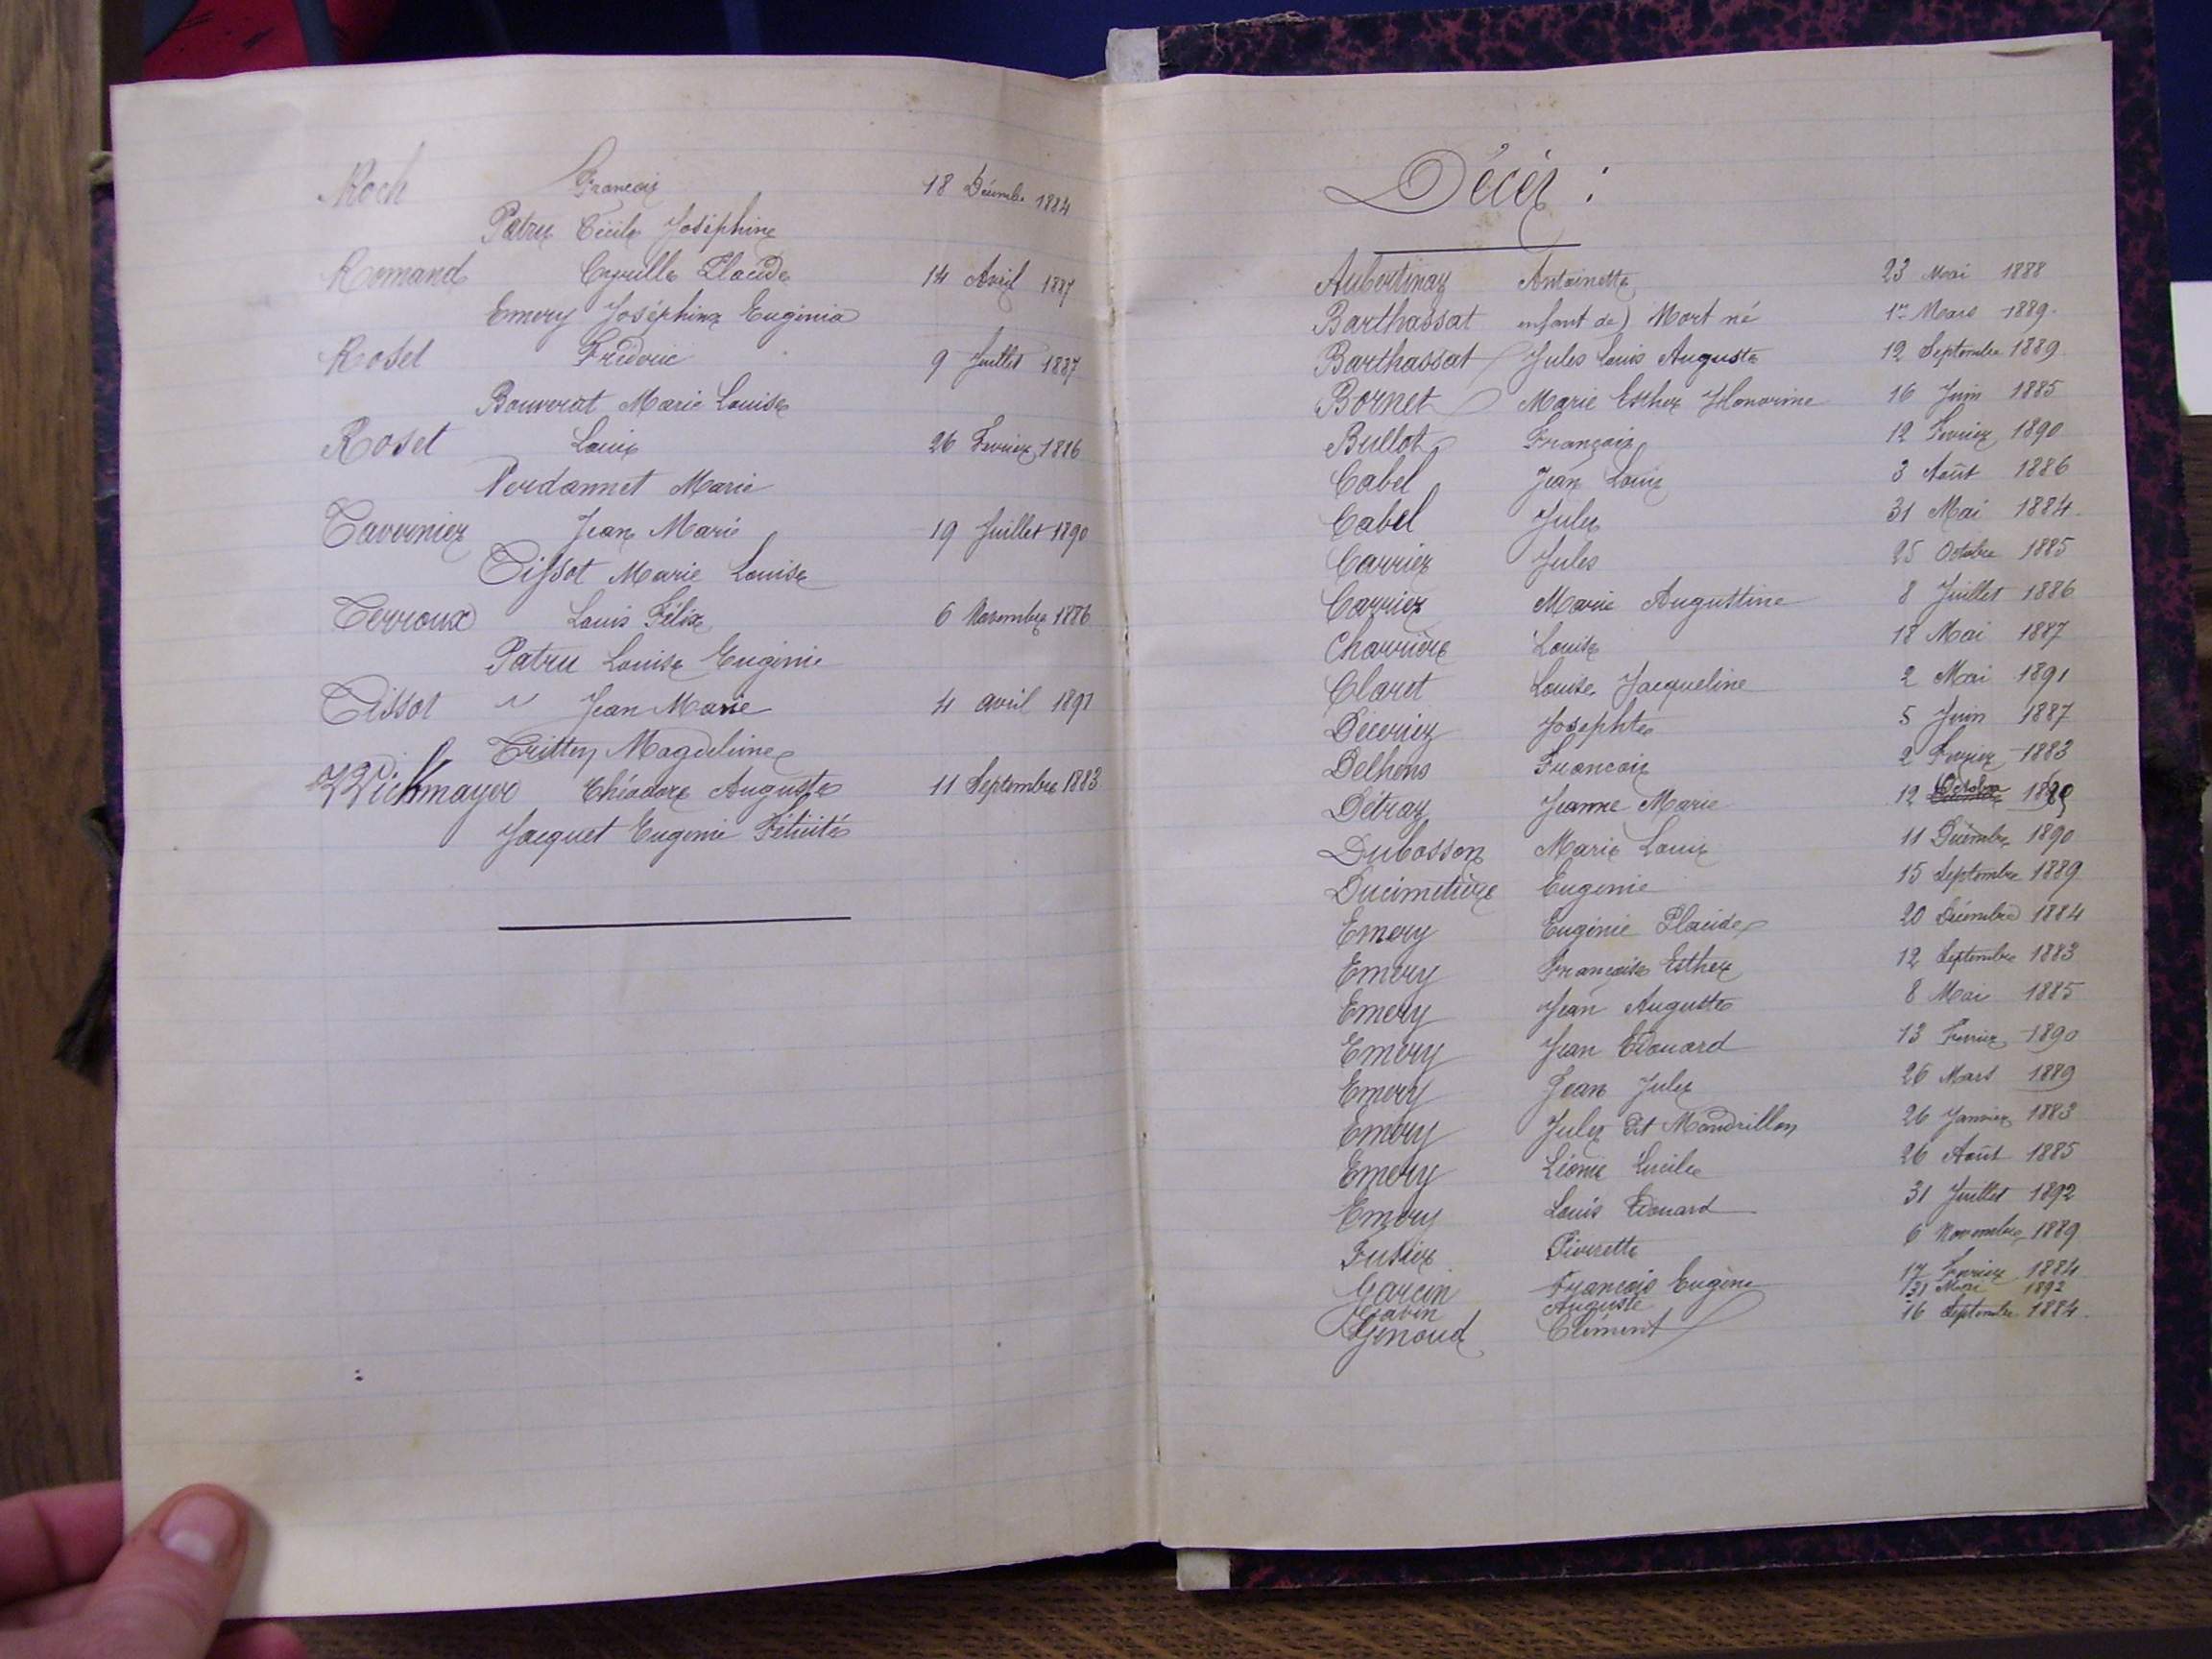 Roch François 18 Décembre 1884
Patru Cécile Joséphine
Romand Cyrille Placide 14 Avril 1887
Emery Joséphine Euginia
Roset Frédéric 9 Juillet 1887
Bouverat Marie Louise
Roset Louis 26 Fevrier 1886
Verdannet Marie
Tavernier Jean Marie 19 Juillet 1890
Tissot Marie Louise
Terroux Louis Félix 6 Novembre 1886
Patru Louise Eugénie
Tissot Jean Marie 4 avril 1891
Tritten Magdeleine
Wickmayer Théodore Auguste 11 Septembre 1883
Jacquet Eugenie Félicité
Décès :
Aubertinaz Antoinette 23 Mai 1888
Barthassat enfant de) Mort né 1er Mars 1889.
Barthassat Jules Louis Auguste 12 Septembre 1889
Bornet Marie Esther Honorine 16 Juin 1885
Bullot François 12 Fevrier 1890
Cabel Jean Louis 3 Août 1886
Cabel Jules 31 Mai 1884.
Carrier Jules 25 Octobre 1885
Carrier Marie Augustine 8 Juillet 1886
Charrière Louise 18 Mai 1887
Claret Louise Jacqueline 2 Mai 1891
Décerier Josephte 5 Juin 1887
Delhens François 2 Fevrier 1883
Détraz Jeanne Marie 12 Octobre
Dubosson Marie Louis 11 Décembre 1890
Ducimetière Eugénie 15 Septembre 1889
Emery Eugénie Placide 20 Décembre 1884
Emery Françoise Esther 12 Septembre 1883
Emery Jean Auguste 8 Mai 1885
Emery Jean Edouard 13 Fevrier 1890
Emery Jean Jules 26 Mars 1889
Emery Jules dit Mandrillon 26 Janvier 1883
Emery Léonie Lucile 26 Août 1885
Emery Louis Edouard 31 Juillet 1892
Fusier Pierrette 6 Novembre 1889
Garcin François Eugène 17 Fevrier 1884
Gavin Auguste 31 Mai 1892
Genoud Clément 16 Septembre 1884.